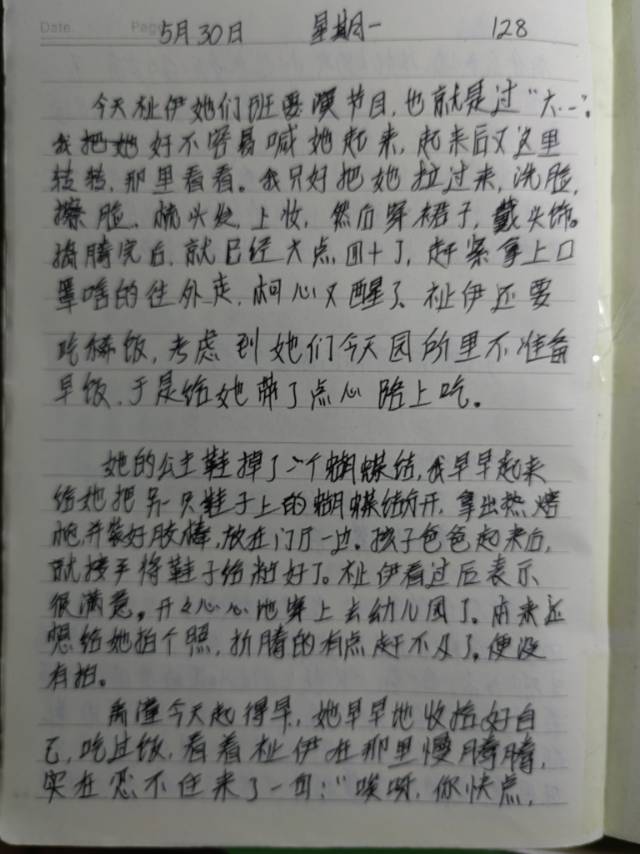 Date. Page
5月30日 星期一 128
今天祉伊她们班要演节目,也就是过“六一”。
我把她好不容易喊她起来,起来后又这里
转转,那里看看。我只好把她拉过来,洗脸,
擦脸,梳头发,上妆,然后穿裙子,戴头饰。
搞腾完后,就已经六点四十了,赶紧拿上口
罩啥的往外走,心又醒了、祉伊还要
吃稀饭,考虑到她们今天园所里不准备
早饭,于是给她带了点心路上吃。
她的公主鞋掉了一个蝴蝶结,我早早起来
给她把另一只鞋子上的蝴蝶结拆开,拿出热熔
枪并装好胶棒,放在门厅一边。孩子爸爸起来后,
就接手将鞋子给粘好了。祉伊看过后表示
很满意。开开心心地穿上去幼儿园了。本来还
想给她拍个照,折腾的有点赶不及了。便没
有拍。
今天起得早,她早早地收拾好自
己,吃过饭,看着祉伊在那里慢腾腾,
实在忍不住来了一句:“唉呀,你快点,